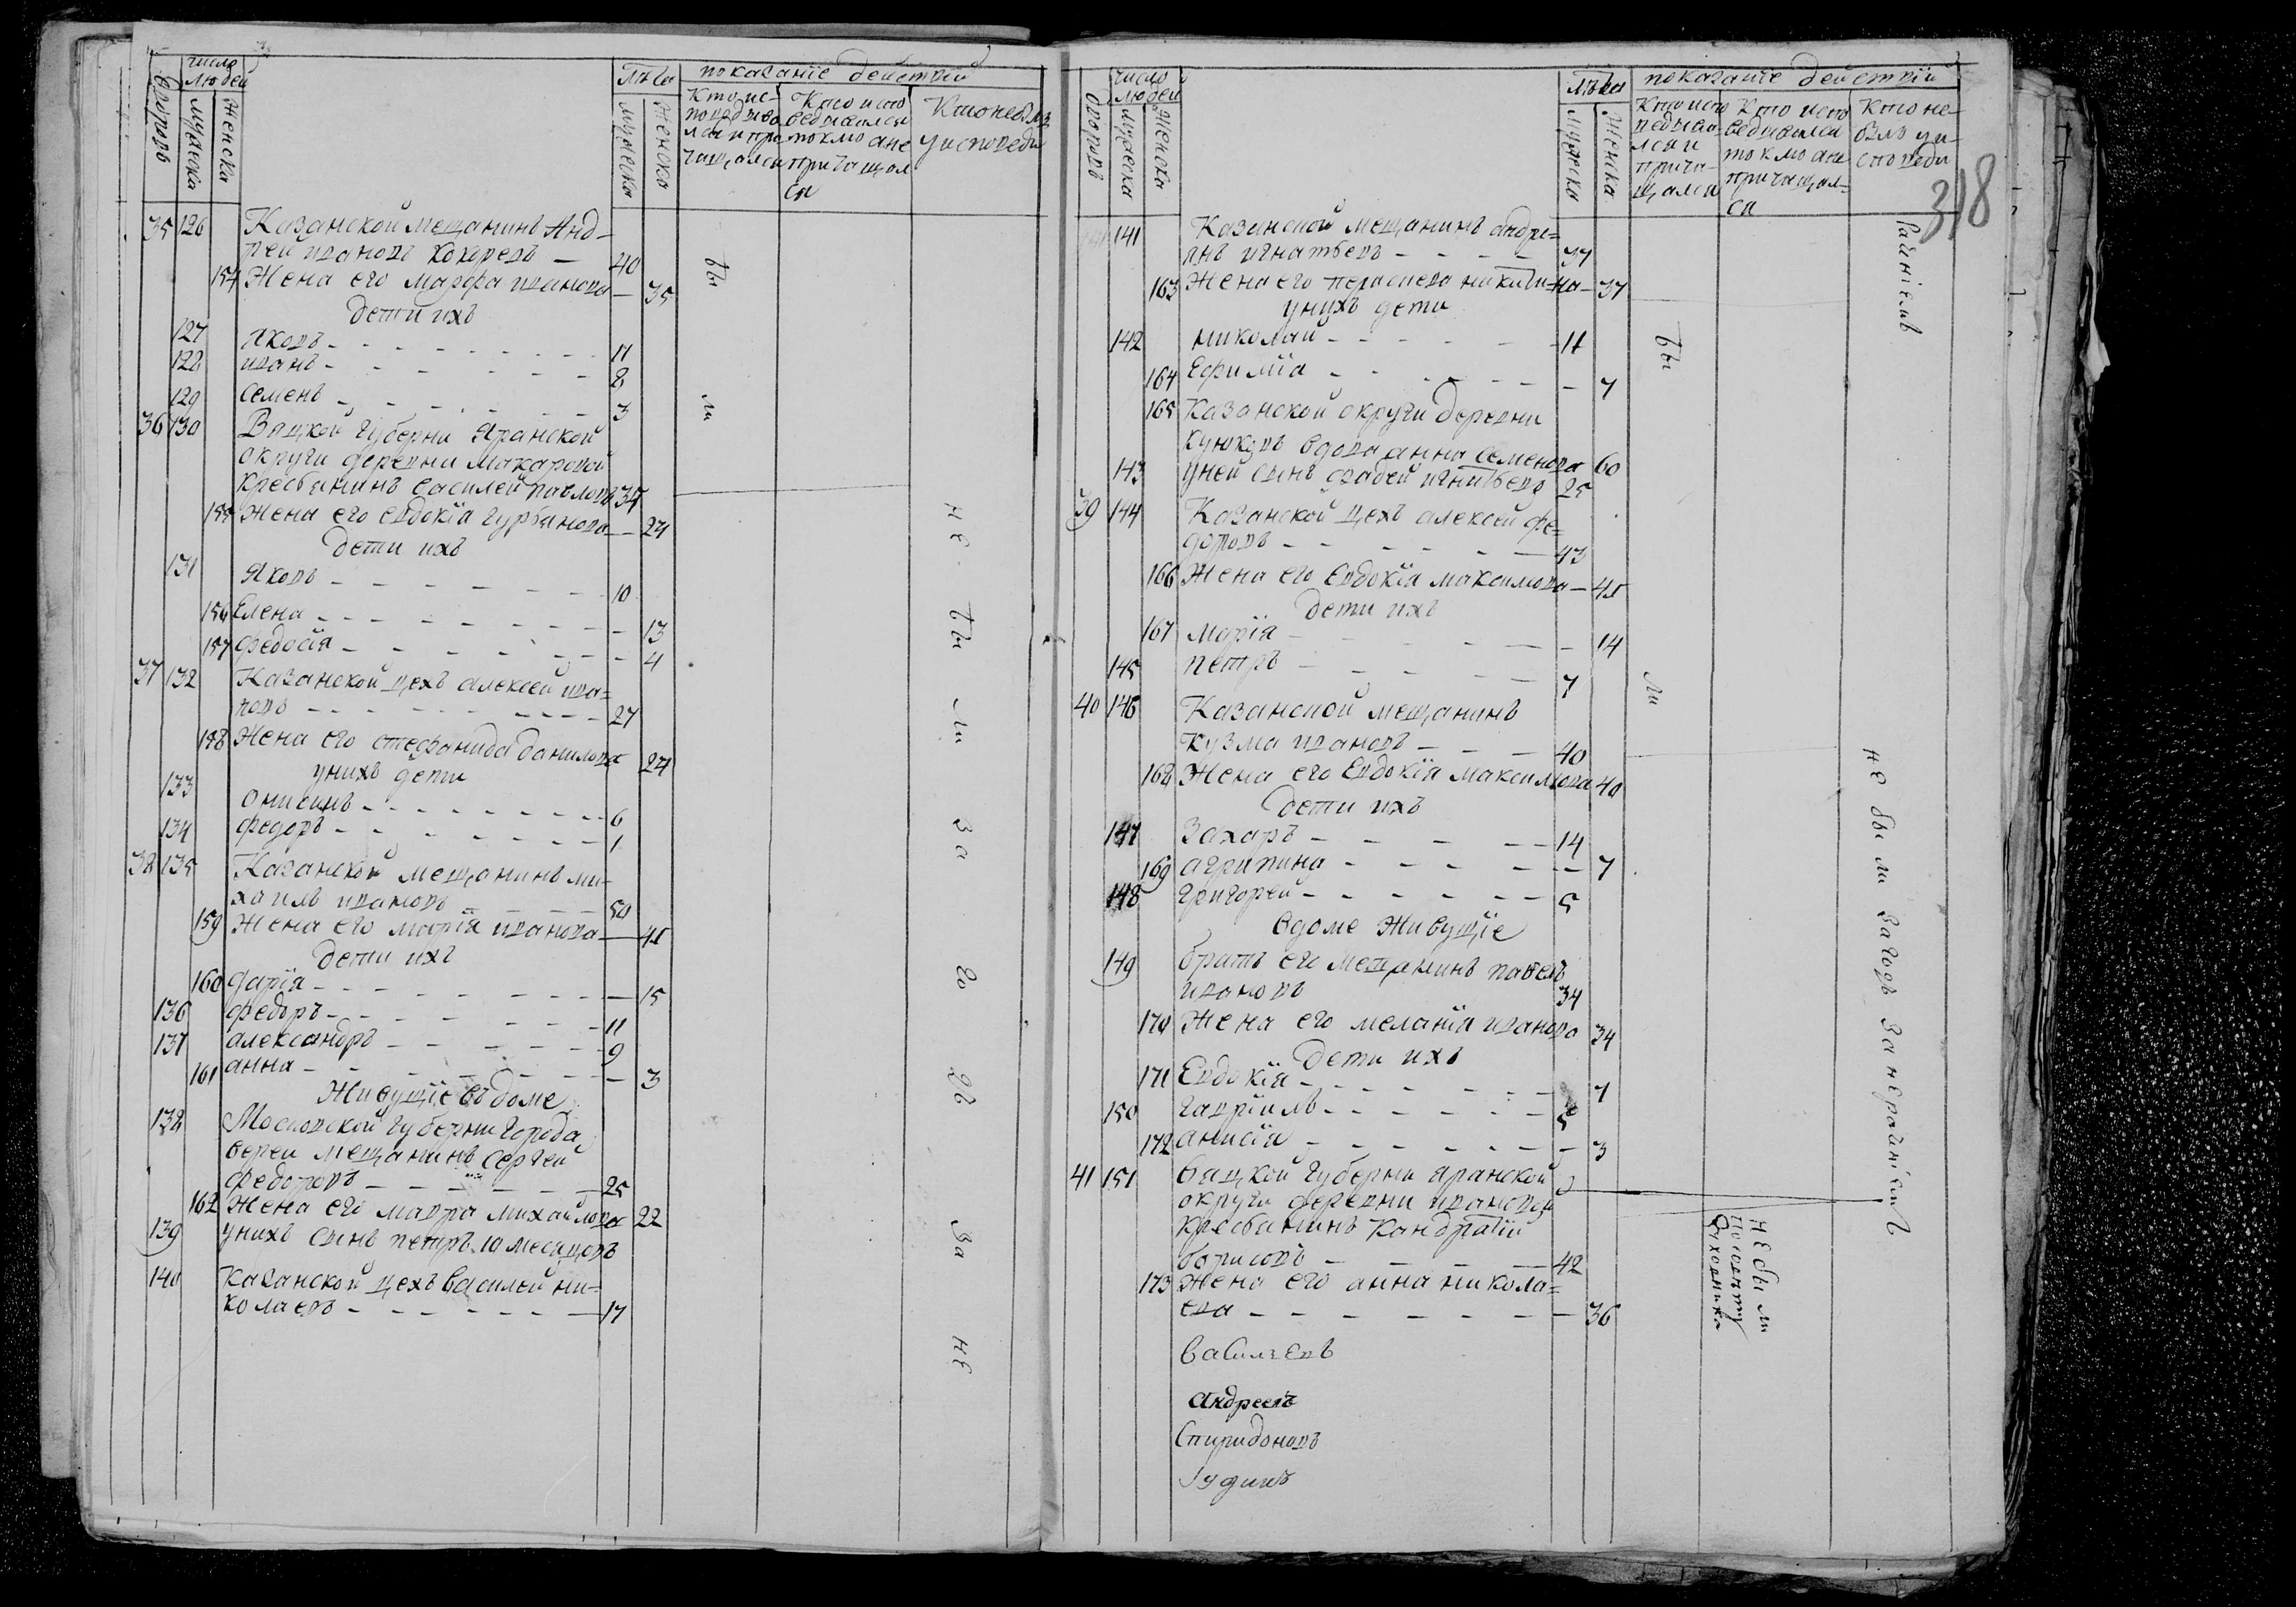 число
людей
дворовъ
мужеска
женска
лѣта
мужеска
женска
показанїе действїй
Кто ис-
поведыва
лся и при
чащался
Кто испо
ведывался
токмо а не
причащал
ся
Кто не былъ
у исповеди
35 126 Казанской мещанинъ Анд-
рей ивановъ 40
154 Жена его марфа иванова 35
дети ихъ
127 Яковъ 11
128 иванъ 8
129 Семенъ 3
36 130 Вяцкой губерни Яранской
округи деревни макаровой
Кресьянинъ василей павловъ 34
155 Жена его евдокїя гурьянова 24
дети ихъ
131 Яковъ 10
156 Елена 13
157 федосїя 4
37 132 Казанской цехъ алексей ива=
новъ 27
158 Жена его стефанида данилова 24
у нихъ дети
133 онисимъ 6
134 федоръ 1
38 135 Казанской мещанинъ ми-
хаилъ ивановъ 50
159 Жена его марїя иванова 45
дети ихъ
160 дарїя 15
136 федоръ 11
137 александръ 9
161 анна 3
Живущїе в доме
138 Московской губернии города
вереи мещанинъ Сергей
федоровъ 25
162 Жена его мавра михайлова 22
139 у нихъ сынъ петръ 10 месяцовъ
140 Казанской цехъ василей ни=
колаевъ 17
бы
ли
не бы ли за го дъ за не
число
людей
дворовъ
мужеска
женска
лѣта
мужеска
женска
показанїе действїй
Кто испо
ведыва-
лся и
прича-
щался
Кто испо
ведывался
токмо а не
причащал=
ся
Кто не-
былъ у и-
споведи
318
141 Казанской мещанинъ андре=
янъ игнатьевъ 37
163 Жена его параскева никити=на 37
у нихъ дети
142 николай 11
164 Ефимїя 7
165 Казанской округи деревни
вдова анна семенова 60
143 у ней сынъ фадей игнатьевъ 25
39 144 Казанской цехъ алексей фе=
доровъ 43
166 Жена его Евдокїя максимова 45
дети ихъ
167 марїя 14
145 петръ 7
40 146 Казанской мещанинъ
Кузма ивановъ 40
168 Жена его Евдокїя максимова 40
дети ихъ
147 Захаръ 14
169 агрипина 7
148 григорей 5
в доме Живущїе
149 братъ его мещанинъ павелъ
ивановъ 34
170 Жена его меланїя иванова 34
дети ихъ
171 Евдокїя 7
150 гаврїилъ 5
172 анисїя 3
41 151 вяцкой губерни яранской
округи деревни ивановой
кресьянинъ Кандратїй
борисовъ 42
173 Жена его анна никола=
ева 36
васильевъ
Андреевъ
Спиридоновъ
Iудинъ
бы
ли
раиніемъ
не бы ли за годъ за нераиніемъ
не бы ли
по совету
духовника